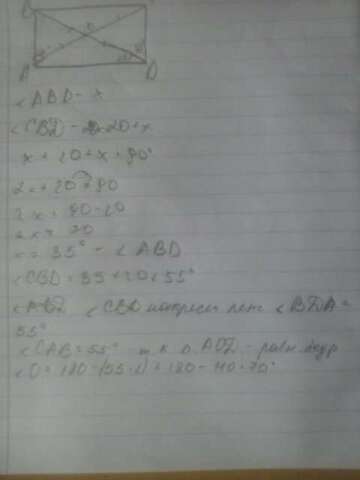 O
D
<ABD - x
<CBD - 20+x
x + 20 + x = 90°
2x + 20 = 90
2x = 90-20
2x = 70
x = 35° - <ABD
<CBD = 35+20=55°
<CBD накрест леж <BDA =
55°
<CAB = 55° т к AOD - равн
<O = 180 - (55·2) = 180 - 110 = 70°